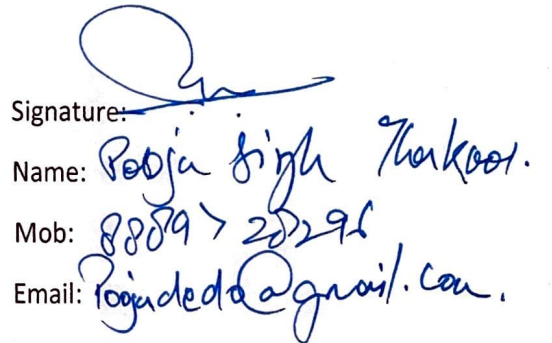 Signature:
Name: Pooja Singh Thakoor.
Mob: 8889728296
Email: Poojadeda@gmail.com.